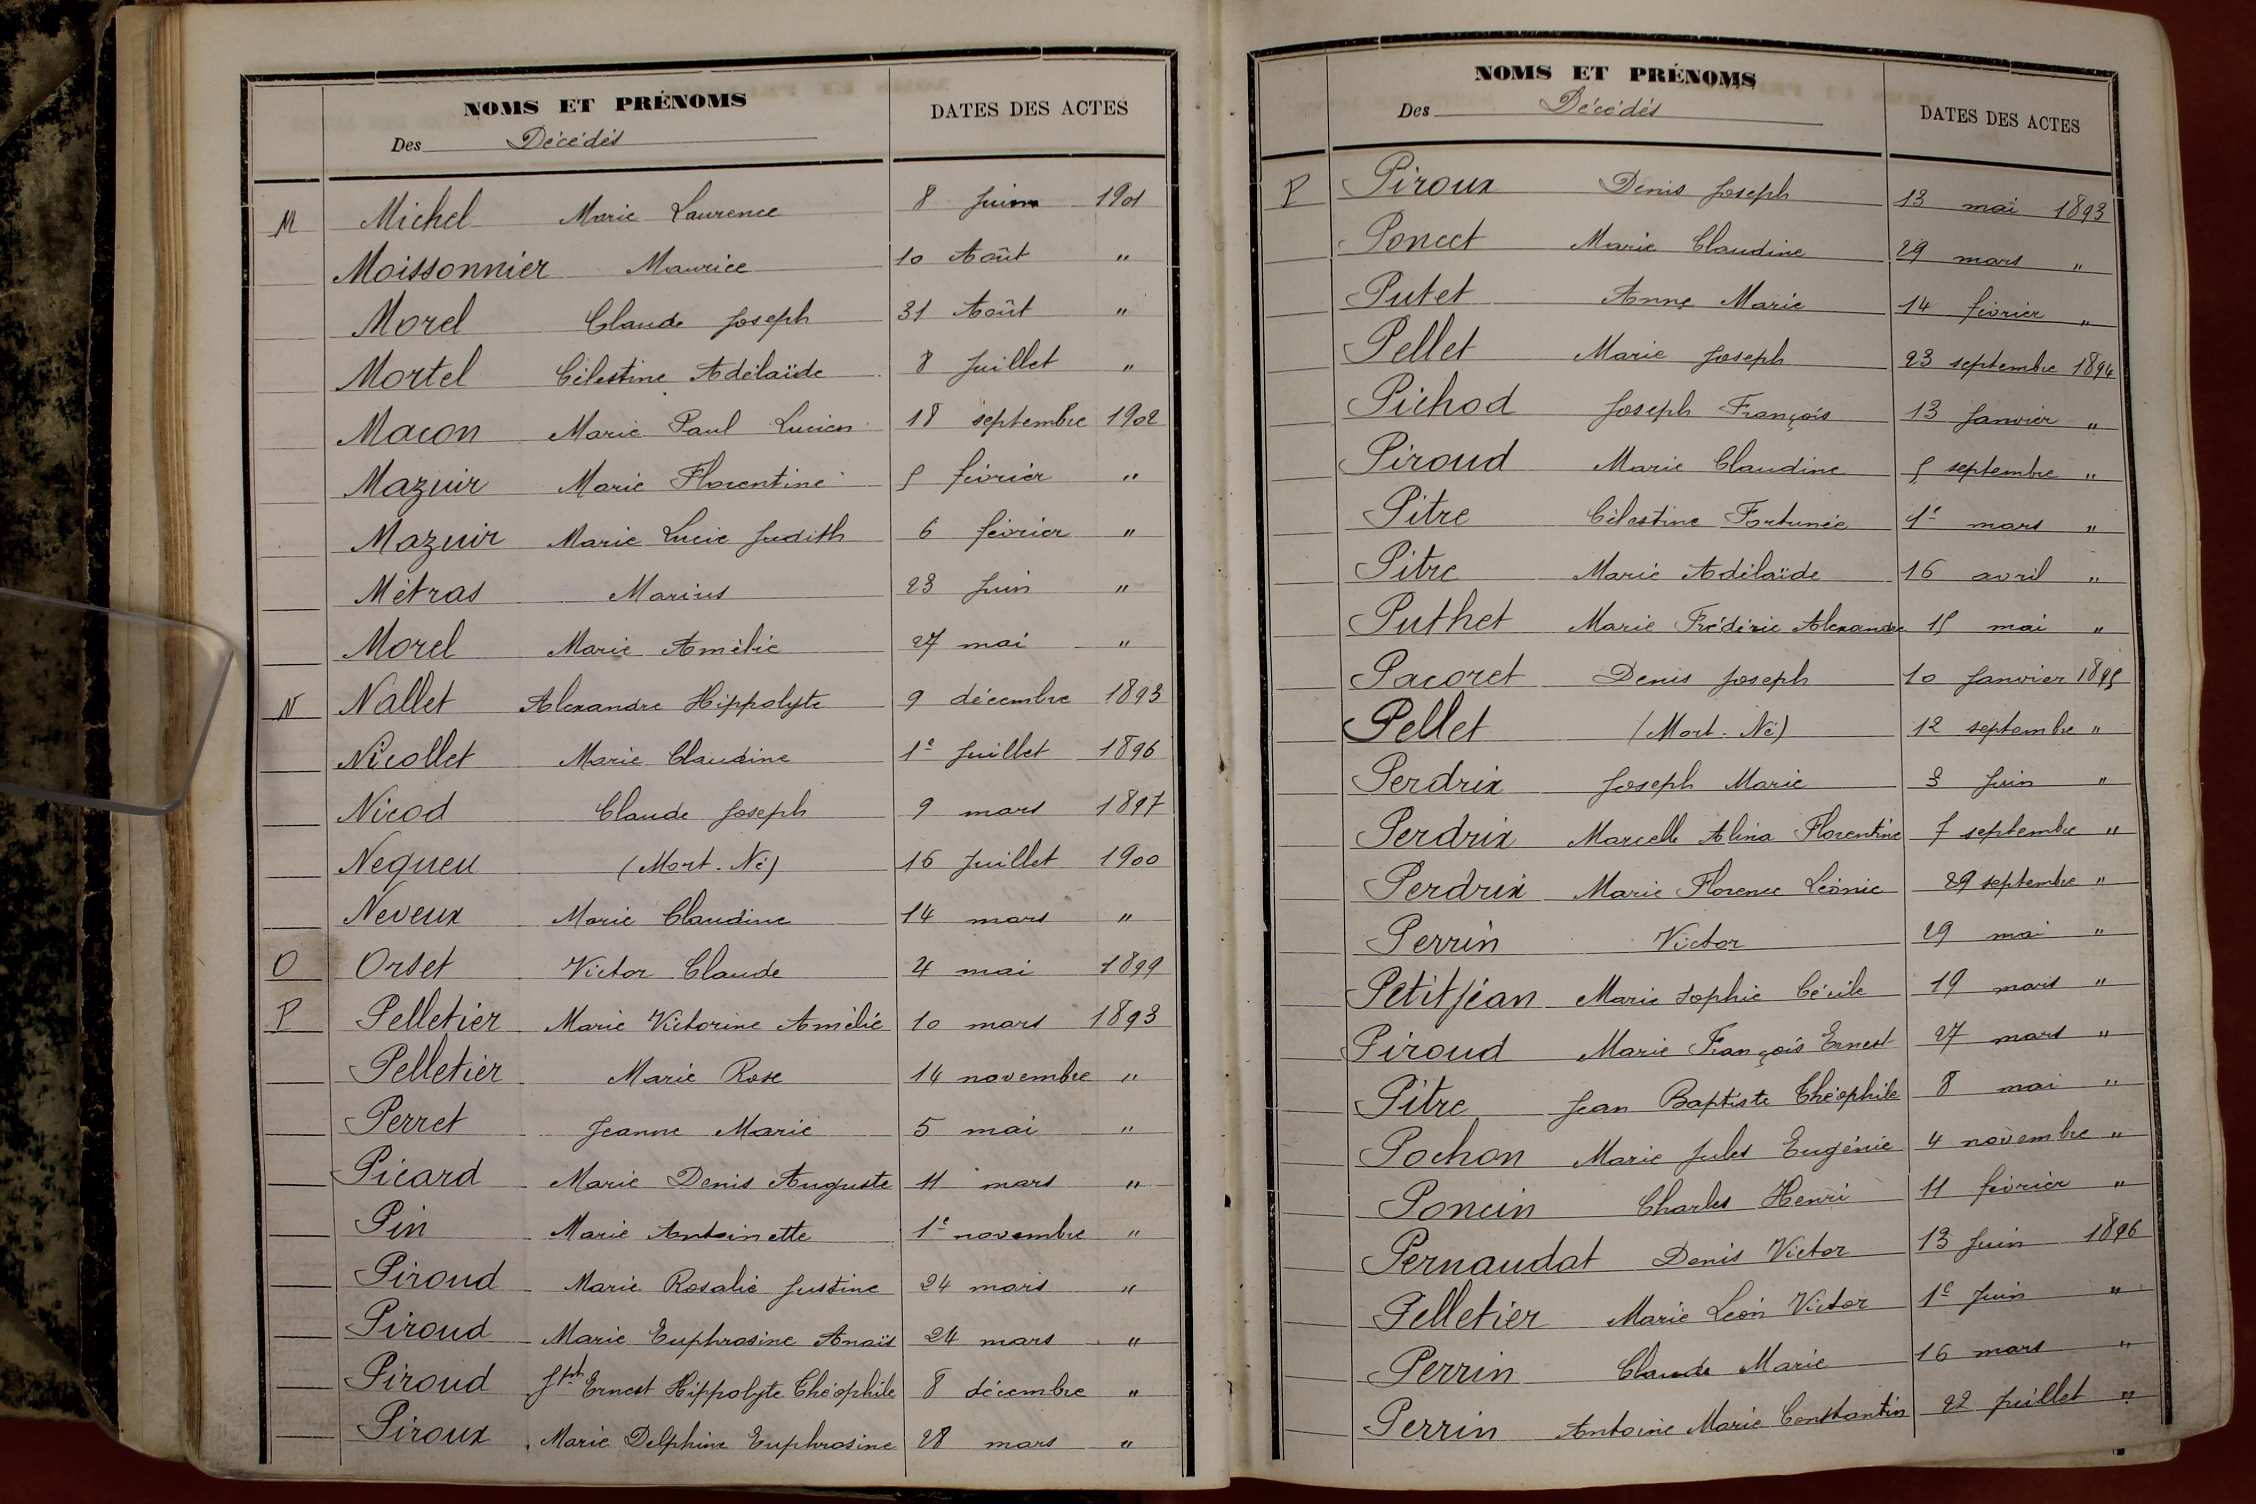 NOMS ET PRÉNOMS
Des Décédés
DATES DES ACTES
M Michel Marie Laurence 8 Juin 1901
Moissonnier Maurice 10 Août "
Morel Claude Joseph 31 Août "
Mortel Célestine Adélaïde 8 Juillet "
Macon Marie Paul Lucien 18 septembre 1902
Mazuir Marie Florentine 5 février "
Mazuir Marie Lucie Judith 6 février "
Métras Marius 23 Juin "
Morel Marie Amélie 27 mai "
N Nallet Alexandre Hippolyte 9 décembre 1893
Nicollet Marie Claudine 1e Juillet 1896
Nicod Claude Joseph 9 mars 1897
Nequeu (Mort-Né) 16 Juillet 1900
Neveux Marie Claudine 14 mars "
O Orset Victor Claude 4 mai 1899
P Pelletier Marie Victorine Amélie 10 mars 1893
Pelletier Marie Rose 14 novembre "
Perret Jeanne Marie 5 mai "
Picard Marie Denis Auguste 11 mars "
Pin Marie Antoinette 1e novembre "
Piroud Marie Rosalie Justine 24 mars "
Piroud Marie Euphrasine Anaïs 24 mars "
Piroud Jph Ernest Hippolyte Théophile 8 décembre "
Piroux Marie Delphine Euphrasine 28 mars "
NOMS ET PRÉNOMS
Des Décédés
DATES DES ACTES
P Piroux Denis Joseph 13 mai 1893
Poncet Marie Claudine 29 mars "
Putet Anne Marie 14 février "
Pellet Marie Joseph 23 septembre 1894
Pichod Joseph François 13 Janvier "
Piroud Marie Claudine 5 septembre "
Pitre Célestine Fortunée 1e mars "
Pitre Marie Adélaïde 16 avril "
Puthet Marie Frédéric Alexandre 15 mai "
Pacoret Denis Joseph 10 Janvier 1895
Pellet (Mort-Né) 12 septembre "
Perdrix Joseph Marie 3 Juin "
Perdrix Marcelle Alina Florentine 7 septembre "
Perdrix Marie Florence Léonie 29 septembre "
Perrin Victor 29 mai "
Petitjéan Marie Sophie Cécile 19 mars "
Piroud Marie François Ernest 27 mars "
Pitre Jean Baptiste Théophile 8 mai "
Pochon Marie Jules Eugénie 4 novembre "
Poncin Charles Henri 11 février "
Pernaudat Denis Victor 13 Juin 1896
Pelletier Marie Léon Victor 1e Juin "
Perrin Claude Marie 16 mars "
Perrin Antoine Marie Constantin 22 Juillet "